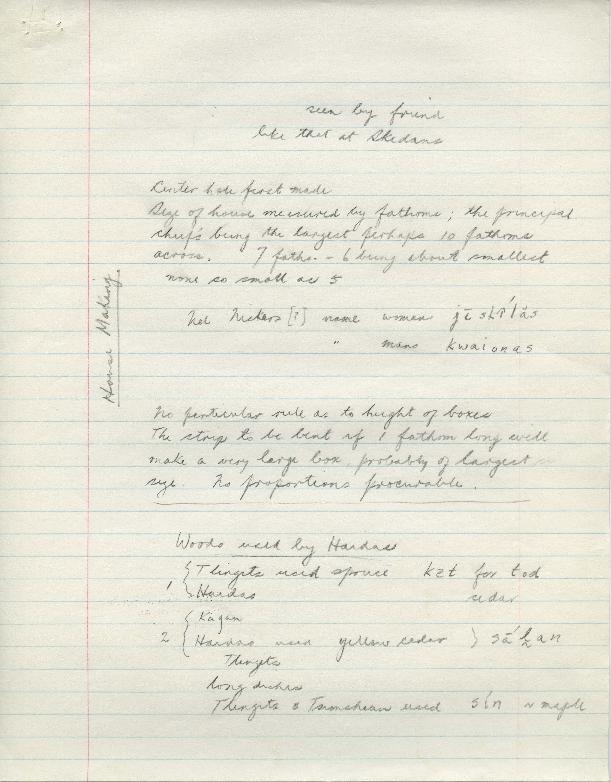 seen by friend
like that at Skedans
Center hole first made
Size of house measured by fathoms; the principal
chiefs being the largest perhaps 10 fathoms
across. 7 faths. - 6 being about smallest
none so small as 5
House Making.
[?] name woman
" mans kwaionas
No particular rule as to height of boxes
The strip to be bent if 1 fathom long will
make a very large box, probably of largest
size. No proportions procurable.
Woods used by Haidas
1 { Tlingits used spruce kzt for tod
Haidas cedar
2 { Kagan
Haidas used yellow cedar }
Tlingits
long dishes
Tlingits & Tsimshean used sin maple